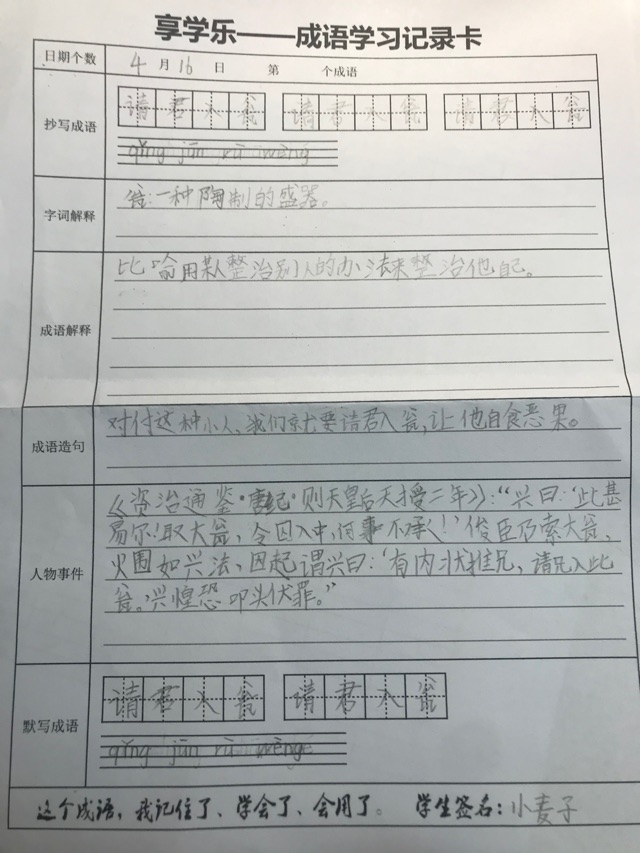 享学乐——成语学习记录卡
日期个数 4月16日 第 个成语
抄写成语 请君入瓮 请君入瓮 请君入瓮
qǐng jūn rù wèng
字词解释 瓮:一种陶制的盛器。
成语解释 比喻用某人整治别人的办法来整治他自己。
成语造句 对付这种小人、我们就要请君入瓮,让他自食恶果。
人物事件 《资治通鉴·唐纪·则天皇后天授二年》:“兴曰:‘此甚
易尔!取大瓮,令囚入中,何事不承!’俊臣乃索大瓮、
火围如兴法、因起谓兴曰:‘有内状推兄,请兄入此
瓮。’兴惶恐叩头伏罪。”
默写成语 请君入瓮 请君入瓮
qǐng jūn rù wèng
这个成语,我记住了、学会了、会用了。 学生签名:小麦子